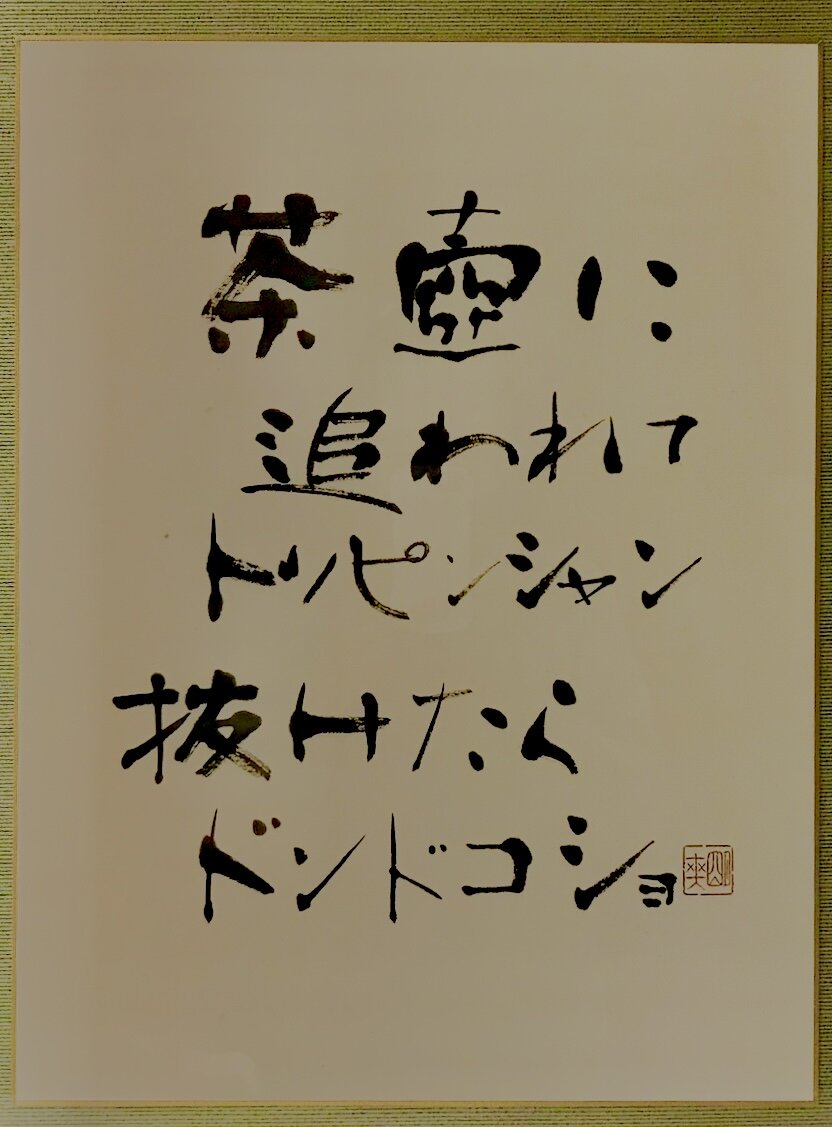 茶壺に
追われて
トッピンシャン
抜けたら
ドンドコショ